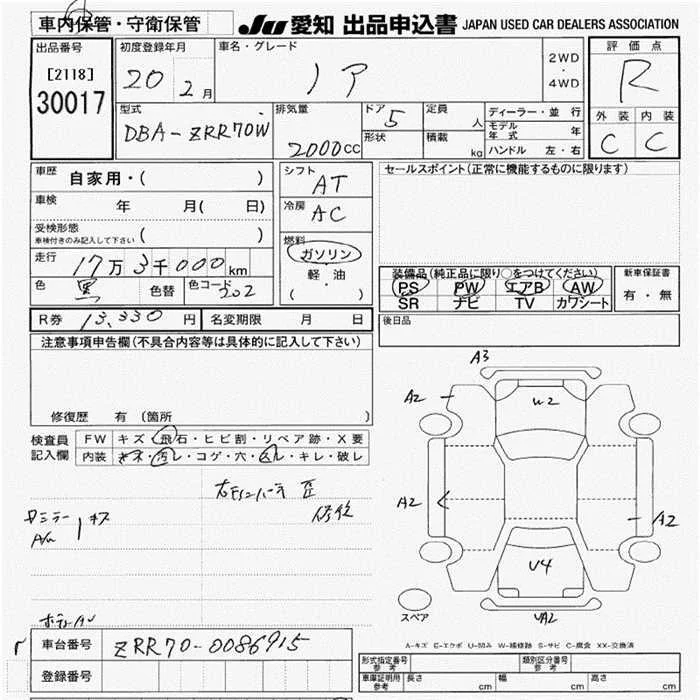 車内保管・守衛保管
JU 愛知 出品申込書 JAPAN USED CAR DEALERS ASSOCIATION
出品番号
[2118]
30017
初度登録年月
20 2月
車名・グレード
ノア
2WD
・
4WD
評価点
R
外装 内装
C C
型式
DBA-ZRR70W
排気量
2000cc
ドア
5
形状
定員
人
積載
kg
ディーラー・並行
モデル年式 年
ハンドル 左・右
車歴
自家用・( )
車検
年 月( 日)
受検形態
車検付きのみ記入して下さい ( )
走行
17万3千000km
色
黒
色替
色コード
202
シフト
AT
冷房
AC
燃料
ガソリン
・
軽・油
・
( )
セールスポイント(正常に機能するものに限ります)
装備品(純正品に限り○をつけてください)
PS PW エアB AW
SR ナビ TV カワシート
新車保証書
有・無
R券 13,330円 名変期限 月 日
後日品
注意事項申告欄(不具合内容等は具体的に記入して下さい)
修復歴 有(箇所 )
検査員
記入欄
FW キズ・飛石・ヒビ割・リペア跡・X要
内装 キズ・汚レ・コゲ・穴・ムル・キレ・破レ
A3
A2
W2
A2
A2
U4
VA2
スペア
A-キズ E-エクボ U-凹み W-補修跡 S-サビ C-腐食 XX-交換済
車台番号 ZRR70-0086915
登録番号
形式指定番号
参考
類別区分番号
参考
車庫証明用
参考
長さ cm 幅 cm 高さ cm